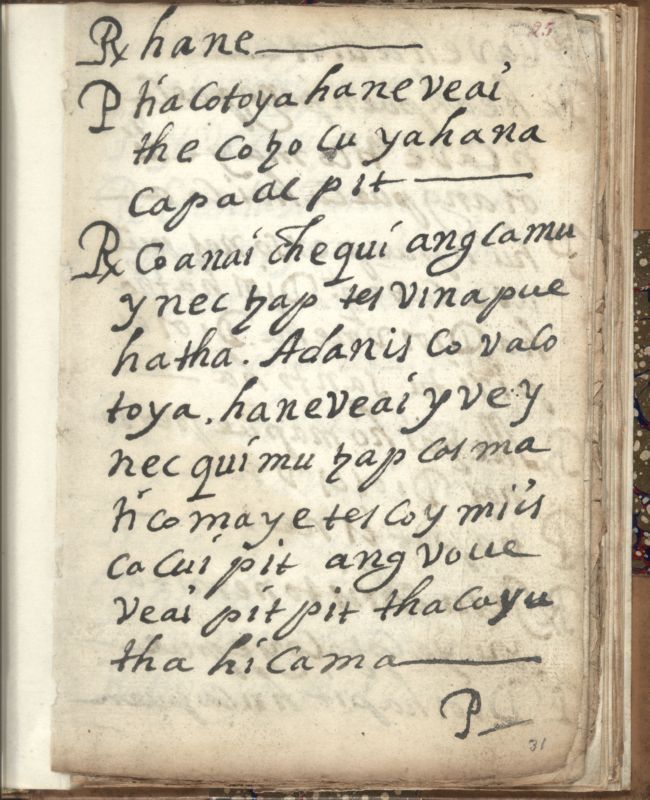 25
R hane
P tiacotoya haneveai
the coꜩo cu yahana
capa ac pit
R Coanai chequi ang camu
y nec ꜩap tes vinapue
hatha. Adanis co vaco
toya. haneveai y ve y
nec quimu ꜩap cos ma
ti co ma y e tes co y miis
ca cui pit ang voue
veai pit pit tha cayu
tha hi cama
P
31